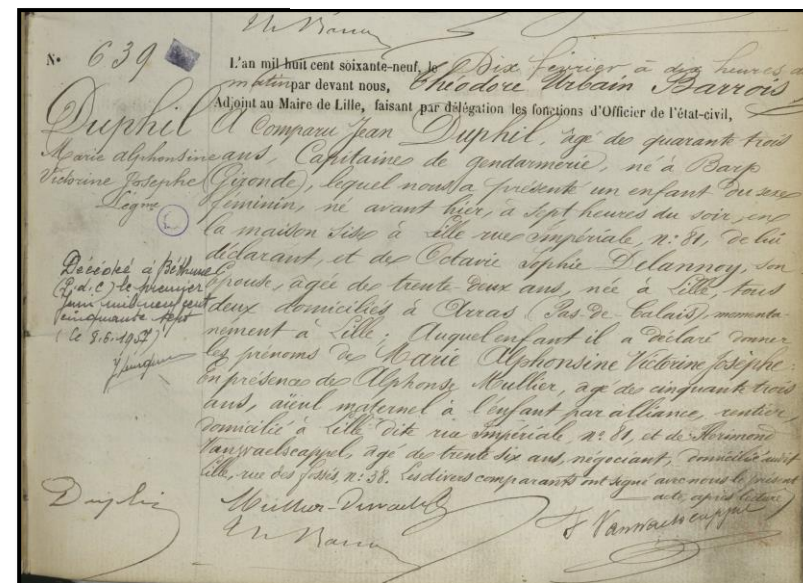 Th Barrois
N° 639
Duphil
Marie Alphonsine
Victorine Josephe
Légme
Décédée à Béthune
(P.d.C) le premier
Juin mil neuf cent
cinquante sept
(le 8.6.1957)
L'an mil huit cent soixante-neuf, le Dix février à dix heures du
matin par devant nous, Théodore Urbain Barrois
Adjoint au Maire de Lille, faisant par délégation les fonctions d'Officier de l'état-civil,
A Comparu Jean Duphil, âgé de quarante trois
ans, Capitaine de gendarmerie, né à Barp
(Gironde), lequel nous a présenté un enfant du sexe
féminin, né avant hier, à sept heures du soir, en
la maison sise à Lille rue Impériale, n: 81, de lui
déclarant, et de Octavie Sophie Delannoy, son
Epouse, agée de trente-deux ans, née à Lille, tous
deux domiciliés à Arras (Pas-de-Calais), momenta-
nement à Lille, Auquel enfant il a déclaré donner
les prénoms de Marie Alphonsine Victorine Josèphe:
En présence de Alphonse Mullier, agé de cinquante trois
ans, aïeul maternel à l'enfant par alliance, rentier,
domicilié à Lille dite rue Impériale, n° 81, et de Florimond
Vanwaelscappel, agé de trente six ans, négociant, domicilié audit
Lille, rue des fossés, n: 38. Les divers comparants ont signé avec nous le présent
acte, après lecture
Duphil
Mullier-
Th Barrois
F Vanwaelscappel